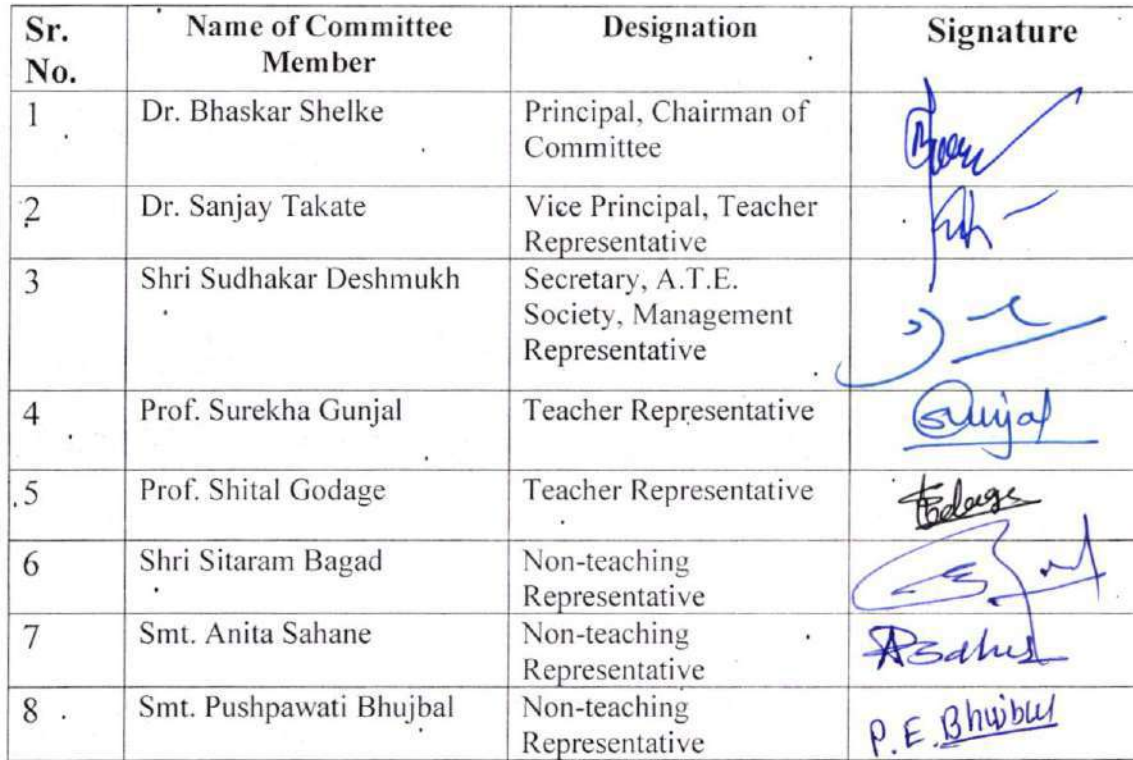 Sr. No.
Name of Committee Member
Designation
Signature
1
Dr. Bhaskar Shelke
Principal, Chairman of
Committee
2
Dr. Sanjay Takate
Vice Principal, Teacher
Representative
3
Shri Sudhakar Deshmukh
Secretary, A.T.E.
Society, Management
Representative
4
Prof. Surekha Gunjal
Teacher Representative
5
Prof. Shital Godage
Teacher Representative
6
Shri Sitaram Bagad
Non-teaching
Representative
7
Smt. Anita Sahane
Non-teaching
Representative
8
Smt. Pushpawati Bhujbal
Non-teaching
Representative
P. E. Bhujbal